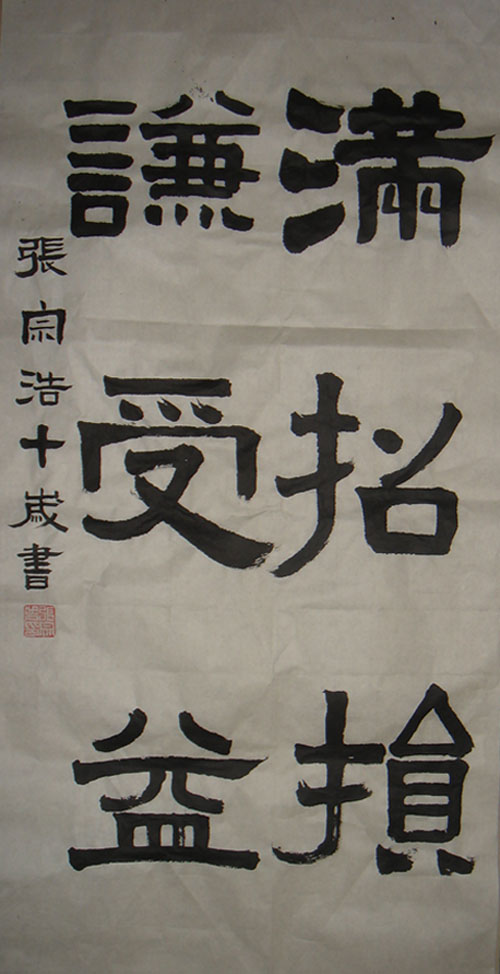 滿招損
謙受益
張宗浩十歲書